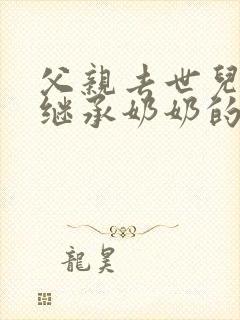 父親去世兒
继承奶奶的
龍昊